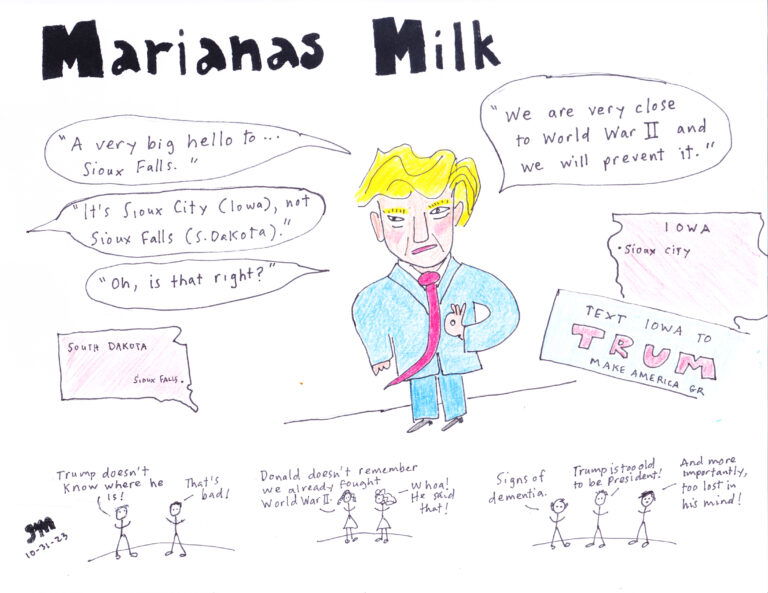 Marianas Milk
"A very big hello to...
Sioux Falls."
"It's Sioux City (Iowa), not
Sioux Falls (S. Dakota)."
"Oh, is that right?"
"We are very close
to World War II and
we will prevent it."
SOUTH DAKOTA
SIOUX FALLS
IOWA
Sioux city
TEXT IOWA TO
TRUM
MAKE AMERICA GR
Trump doesn't
know where he
is!
That's
bad!
Donald doesn't remember
we already fought
World War II.
Whoa!
He said
that!
Signs of
dementia.
Trump is too old
to be president!
And more
importantly,
too lost in
his mind!
JM
10-31-23